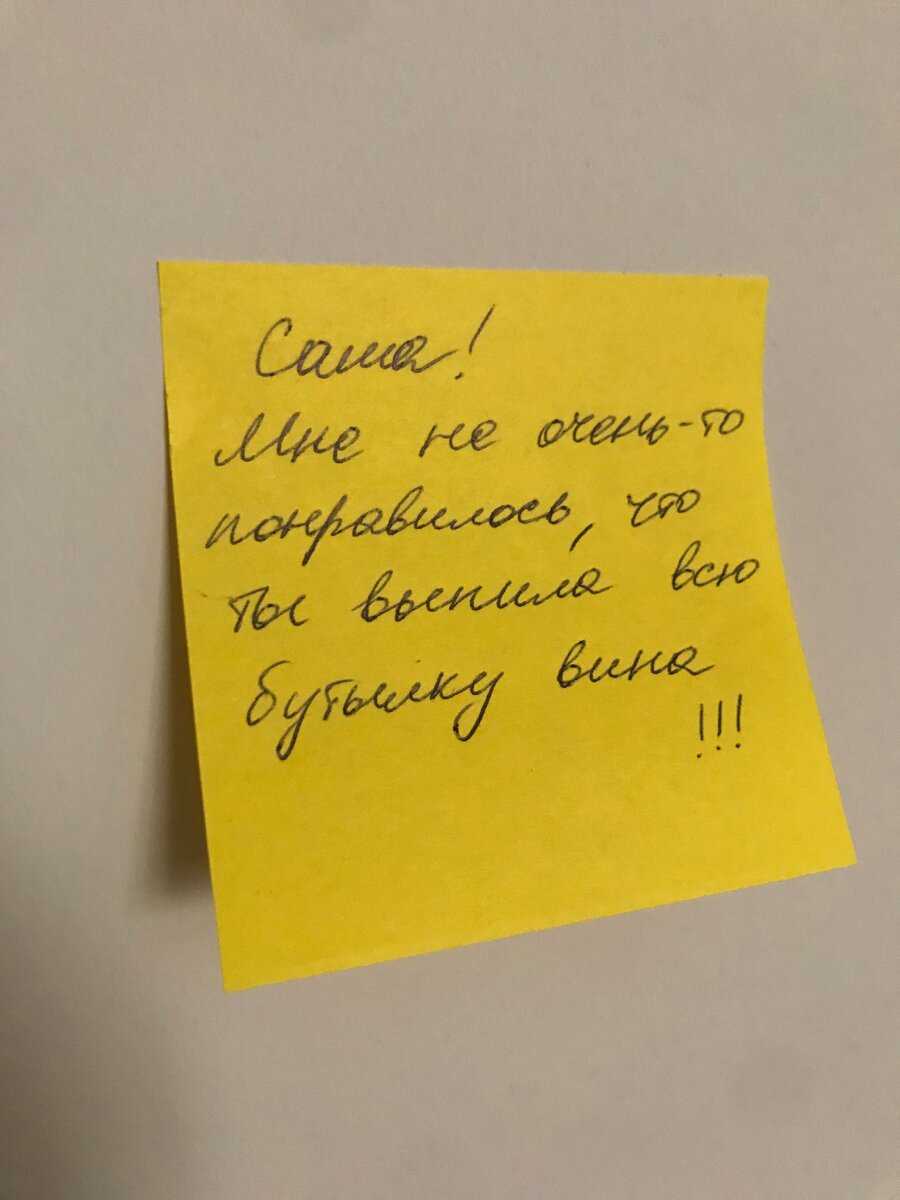 Саша!
Мне не очень-то
понравилось, что
ты выпила всю
бутылку вина
!!!